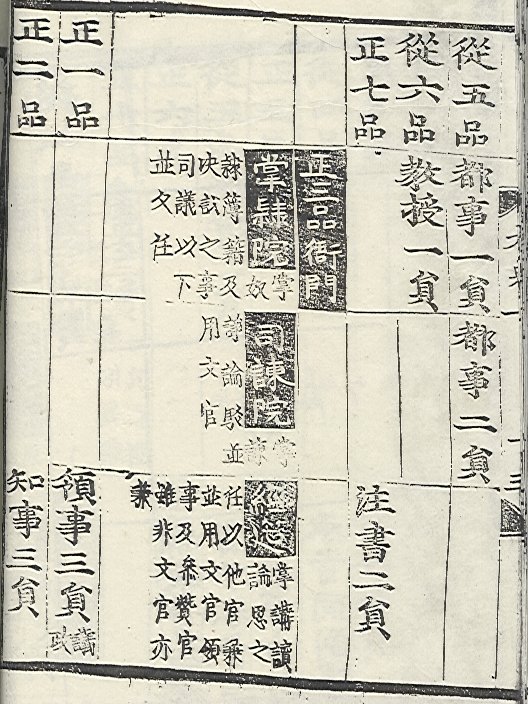 從五品 都事一貟 都事二貟
從六品 教授一貟
正七品 注書二貟
正三品衙門
掌隷院 掌奴
隷簿籍及
决訟之事
司議以下
並文任
司諫院 掌諫
諍論駁並
用文官
經筵 掌講讀
論思之
任以他官兼
並用文官領
事及叅贊官
雖非文官亦
兼
正一品 領事三貟 議政
正二品 知事三貟